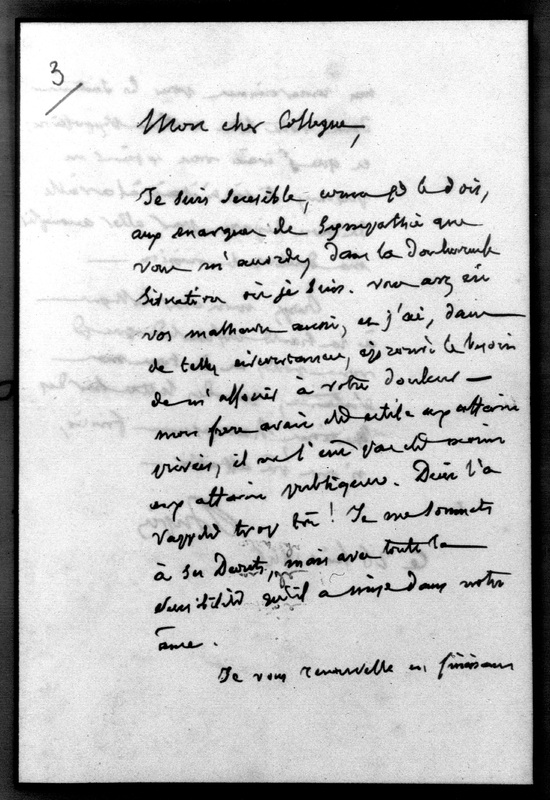 3
Mon cher Collegue,
Je suis sensible, comme je le dois,
aux marques de sympathie que
vous m'accordez dans la douloureuse
situation où je suis. vous avez eu
vos malheurs aussi, et j'ai, dans
de telles circonstances, éprouvé le besoin
de m'associer à votre douleur —
mon frere avait été utile aux affaires
privées, il ne l'eut pas été moins
aux affaires publiques. Dieu l'a
rappelé trop tôt ! Je me soumets
à ses Decrets, mais avec toute la
sensibilité qu'il a mise dans notre
âme.
Je vous renouvelle en finissant